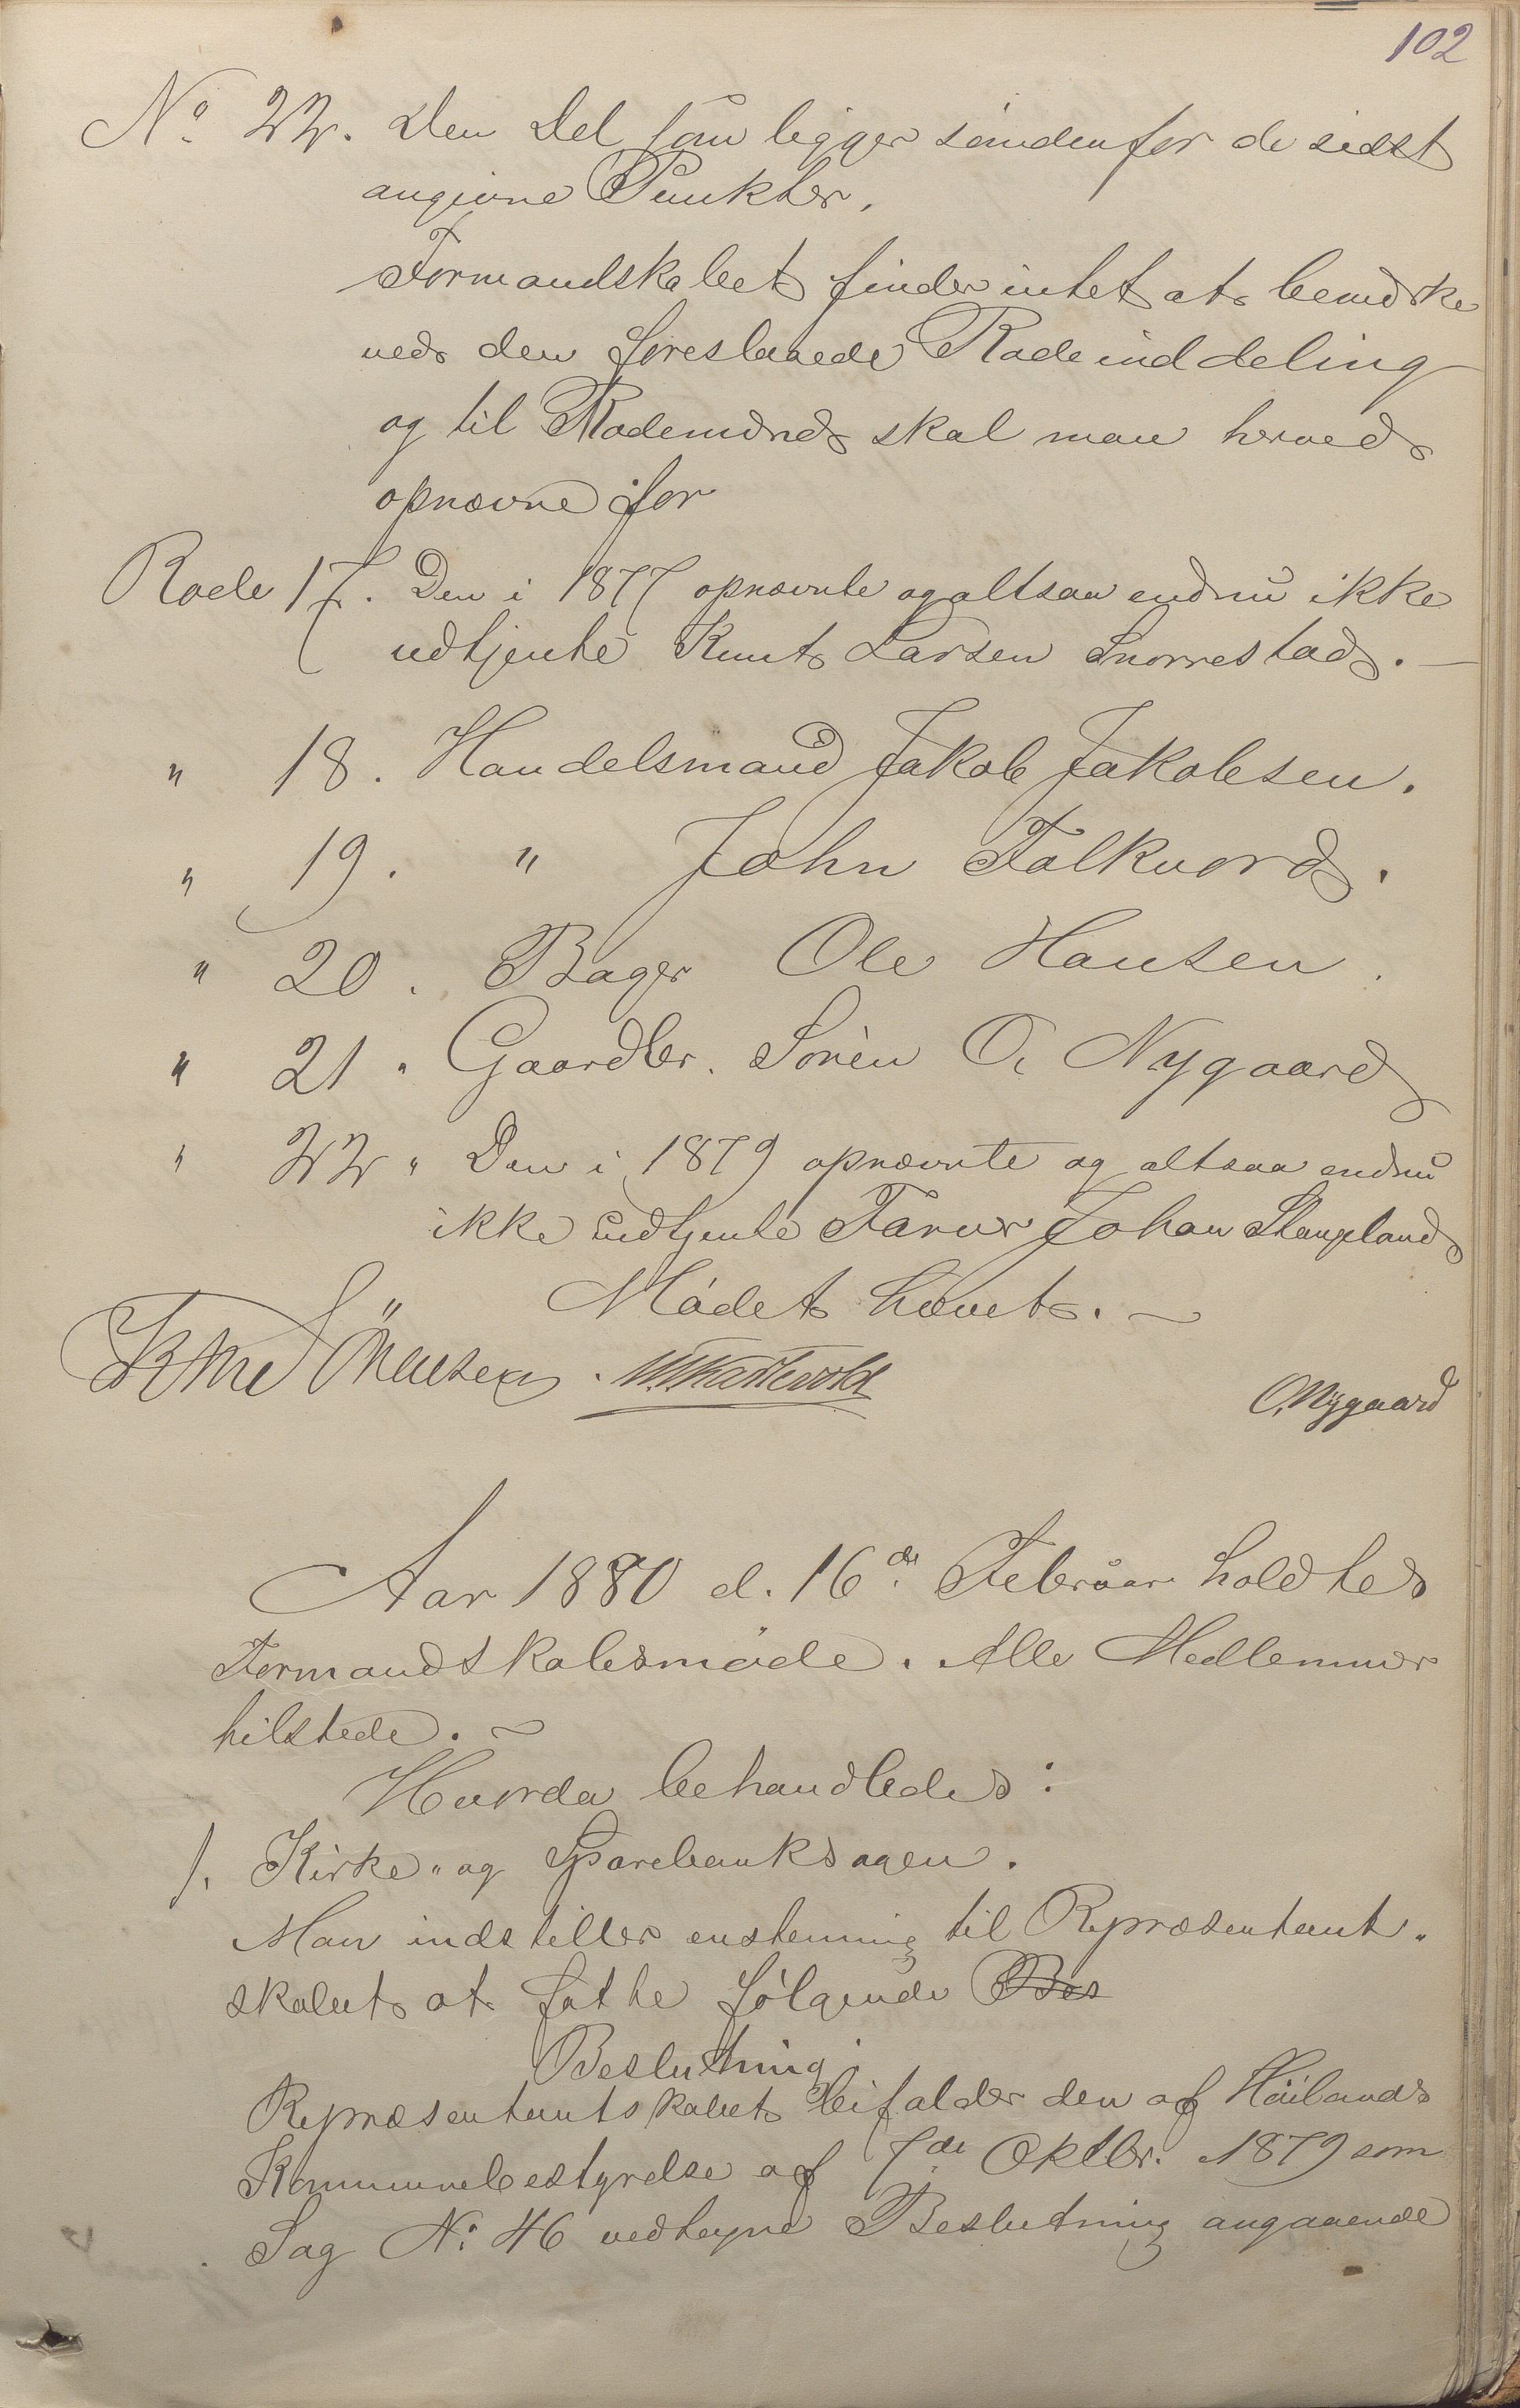 102
No 22. Den Del som ligger søndenfor de sidst
angivne Punkter.
Formandskabet finder intet at bemærke
ved den foreslaaede Rodeinddeling
og til Rodemænd skal man herved
opnævne for
Rode 17. Den i 1877 opnævnte og altsaa endnu ikke
udtjente Knut Larsen Snorrestad. —
" 18. Handelsmand Jakob Jakobsen.
" 19. " John Folkvord.
" 20. Bager Ole Hansen.
" 21. Gaardbr. Sören O. Nygaard
" 22. Den i 1879 opnævnte og altsaa endnu
ikke udtjente Farver Johan Stangeland
Mödet hævet. —
O. Nygaard
Aar 1880 d. 16de Februar holdtes
Formandskabsmöde. Alle Medlemmer
tilstede. —
Hvorda behandledes:
1. Kirke- og Sparebanksagen.
Man indstiller enstemmig til Repræsentant-
skabet at fatte fölgende Bes
Beslutning.
Repræsentantskabet bifalder den af Höilands
Kommunebestyrelse af 7de Oktbr. 1879 som
Sag No 46 vedtagne Beslutning angaaende